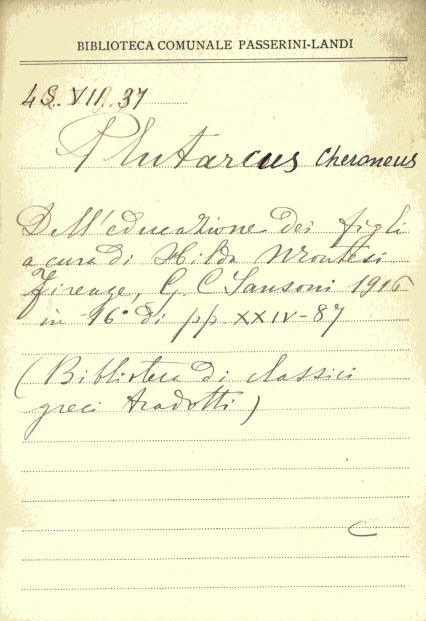 BIBLIOTECA COMUNALE PASSERINI-LANDI
4S. VII. 37
Plutarcus Cheroneus
Dell'educazione dei figli
a cura di Hilda Montesi
Firenze, G. C Sansoni 1916
in -16° di pp XXIV-87
(Biblioteca di classici
greci tradotti)